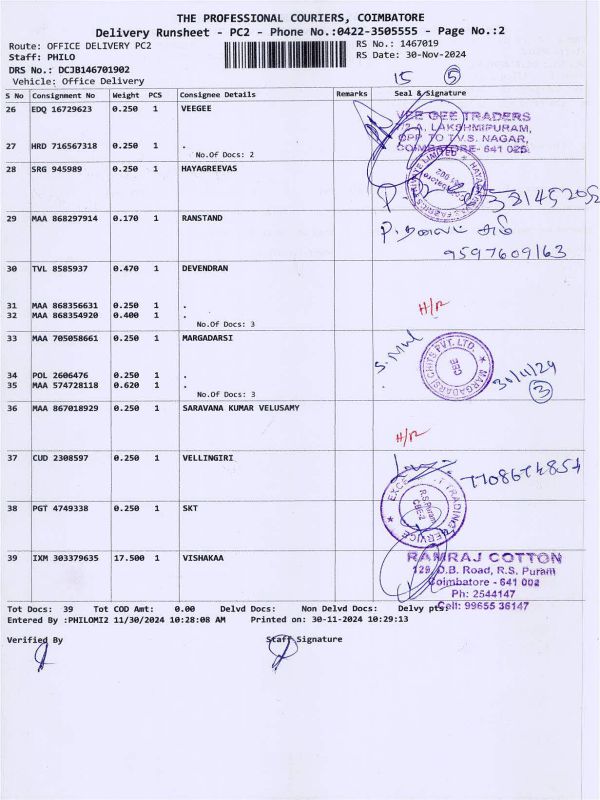 THE PROFESSIONAL COURIERS, COIMBATORE
Delivery Runsheet - PC2 - Phone No.:0422-3505555 - Page No.:2
Route: OFFICE DELIVERY PC2
RS No.: 1467019
Staff: PHILO
RS Date: 30-Nov-2024
DRS No.: DCJB146701902
Vehicle: Office Delivery
15 5
S No Consignment No Weight PCS Consignee Details Remarks Seal & Signature
26 EDQ 16729623 0.250 1 VEEGEE
VEE GEE TRADERS
LAKSHMIPURAM,
OPP TO T.V.S. NAGAR,
COIMBATORE- 641 025
27 HRD 716567318 0.250 1 .
No.Of Docs: 2
28 SRG 945989 0.250 1 HAYAGREEVAS
Coimbatore
641 002
29 MAA 868297914 0.170 1 RANSTAND
9597609163
30 TVL 8585937 0.470 1 DEVENDRAN
31 MAA 868356631 0.250 1 .
32 MAA 868354920 0.400 1 .
No.Of Docs: 3
H/R
33 MAA 705058661 0.250 1 MARGADARSI
MARGADARSI CHITS PVT. LTD.
CBE
30/11/24
3
34 POL 2606476 0.250 1 .
35 MAA 574728118 0.620 1 .
No.Of Docs: 3
36 MAA 867018929 0.250 1 SARAVANA KUMAR VELUSAMY
H/R
37 CUD 2308597 0.250 1 VELLINGIRI
38 PGT 4749338 0.250 1 SKT
R.S.Puram
CBE-2
39 IXM 303379635 17.500 1 VISHAKAA
RAMRAJ COTTON
129, D.B. Road, R.S. Puram
Coimbatore - 641 002
Ph: 2544147
Cell: 99655 36147
Tot Docs: 39 Tot COD Amt: 0.00 Delvd Docs: Non Delvd Docs: Delvy pts:
Entered By :PHILOMI2 11/30/2024 10:28:08 AM Printed on: 30-11-2024 10:29:13
Verified By Staff Signature